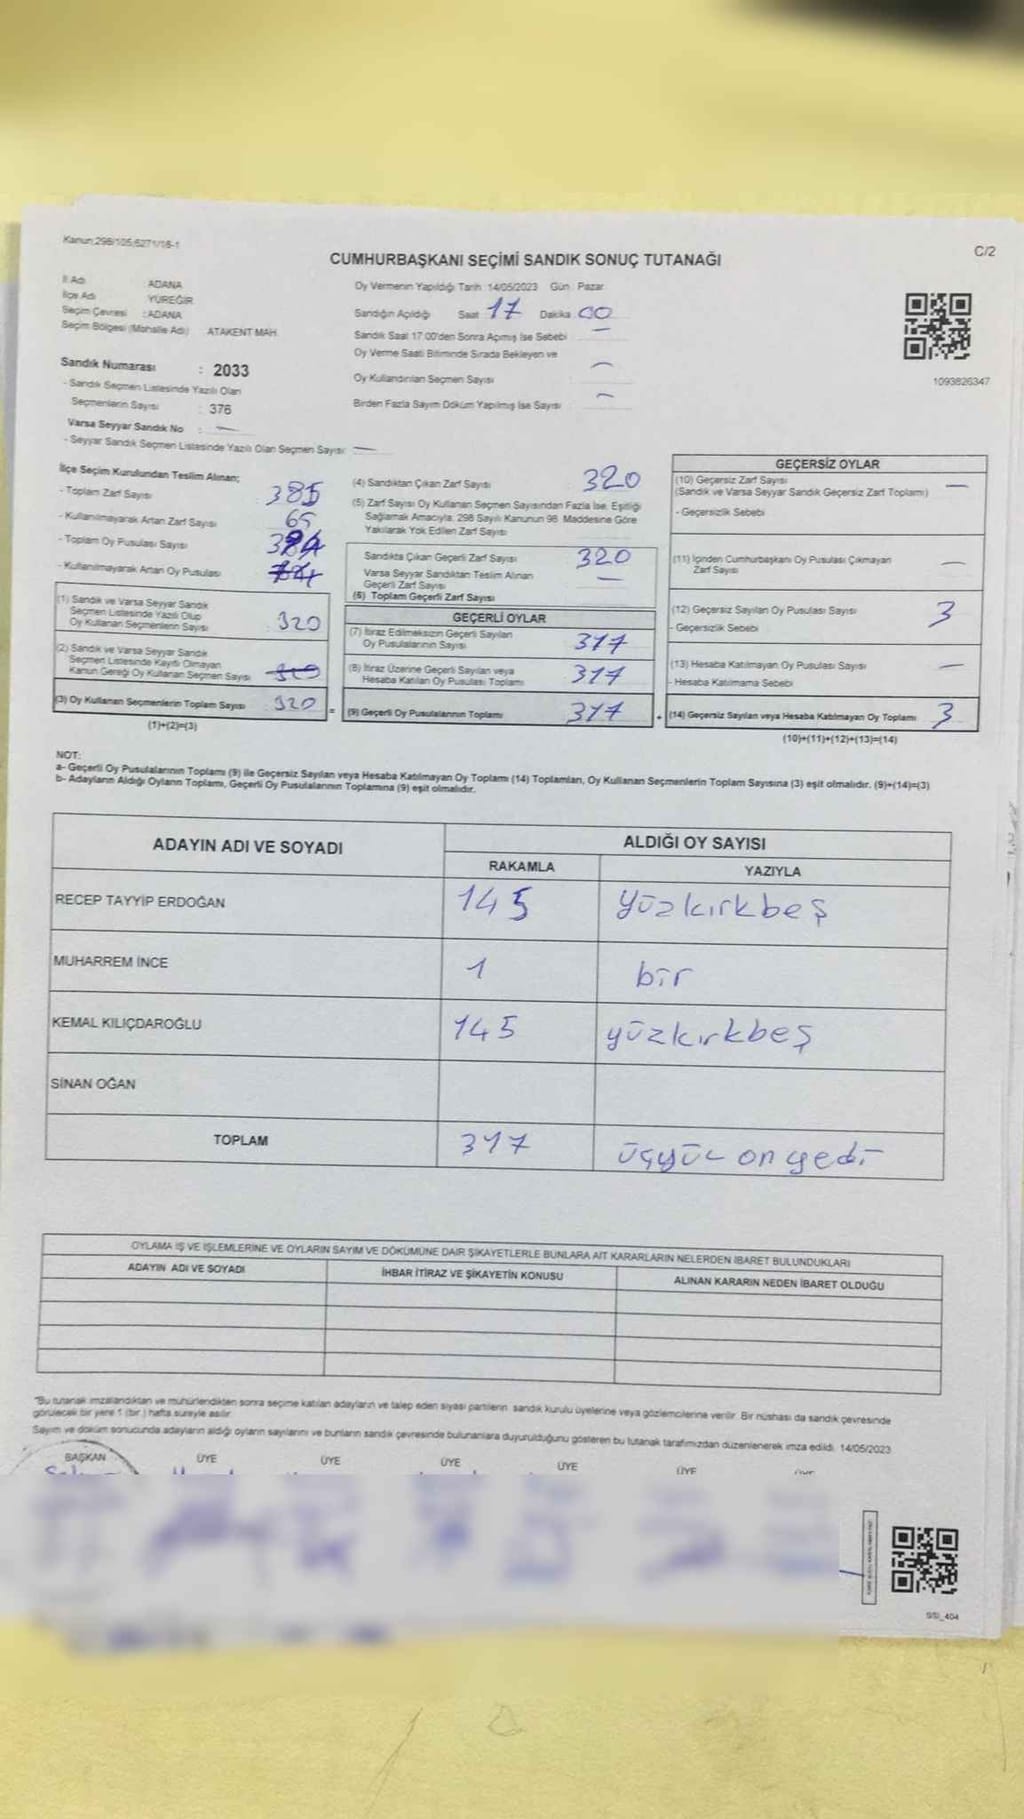 Kanun:298/105;6271/18-1
C/2
CUMHURBAŞKANI SEÇİMİ SANDIK SONUÇ TUTANAĞI
İl Adı : ADANA
İlçe Adı : YÜREĞİR
Seçim Çevresi : ADANA
Seçim Bölgesi (Mahalle Adı) ATAKENT MAH.
Sandık Numarası : 2033
- Sandık Seçmen Listesinde Yazılı Olan
Seçmenlerin Sayısı : 376
Varsa Seyyar Sandık No : —
- Seyyar Sandık Seçmen Listesinde Yazılı Olan Seçmen Sayısı: —
Oy Vermenin Yapıldığı Tarih: 14/05/2023 Gün : Pazar
Sandığın Açıldığı Saat 17 Dakika 00
Sandık Saat 17.00'den Sonra Açılmış İse Sebebi —
Oy Verme Saati Bitiminde Sırada Bekleyen ve
Oy Kullandırılan Seçmen Sayısı —
Birden Fazla Sayım Döküm Yapılmış İse Sayısı —
1093826347
İlçe Seçim Kurulundan Teslim Alınan;
- Toplam Zarf Sayısı 385
- Kullanılmayarak Artan Zarf Sayısı 65
- Toplam Oy Pusulası Sayısı
- Kullanılmayarak Artan Oy Pusulası
(1) Sandık ve Varsa Seyyar Sandık
Seçmen Listesinde Yazılı Olup
Oy Kullanan Seçmenlerin Sayısı : 320
(2) Sandık ve Varsa Seyyar Sandık
Seçmen Listesinde Kayıtlı Olmayan
Kanun Gereği Oy Kullanan Seçmen Sayısı
(3) Oy Kullanan Seçmenlerin Toplam Sayısı : 320 =
(1)+(2)=(3)
(4) Sandıktan Çıkan Zarf Sayısı 320
(5) Zarf Sayısı Oy Kullanan Seçmen Sayısından Fazla İse, Eşitliği
Sağlamak Amacıyla, 298 Sayılı Kanunun 98. Maddesine Göre
Yakılarak Yok Edilen Zarf Sayısı
Sandıkta Çıkan Geçerli Zarf Sayısı 320
Varsa Seyyar Sandıktan Teslim Alınan
Geçerli Zarf Sayısı —
(6) Toplam Geçerli Zarf Sayısı
GEÇERLİ OYLAR
(7) İtiraz Edilmeksizin Geçerli Sayılan
Oy Pusulalarının Sayısı 317
(8) İtiraz Üzerine Geçerli Sayılan veya
Hesaba Katılan Oy Pusulası Toplamı 317
(9) Geçerli Oy Pusulalarının Toplamı 317 +
GEÇERSİZ OYLAR
(10) Geçersiz Zarf Sayısı —
(Sandık ve Varsa Seyyar Sandık Geçersiz Zarf Toplamı)
- Geçersizlik Sebebi
(11) İçinden Cumhurbaşkanı Oy Pusulası Çıkmayan
Zarf Sayısı —
(12) Geçersiz Sayılan Oy Pusulası Sayısı 3
- Geçersizlik Sebebi
(13) Hesaba Katılmayan Oy Pusulası Sayısı —
- Hesaba Katılmama Sebebi
(14) Geçersiz Sayılan veya Hesaba Katılmayan Oy Toplamı 3
(10)+(11)+(12)+(13)=(14)
NOT:
a- Geçerli Oy Pusulalarının Toplamı (9) ile Geçersiz Sayılan veya Hesaba Katılmayan Oy Toplamı (14) Toplamları, Oy Kullanan Seçmenlerin Toplam Sayısına (3) eşit olmalıdır. (9)+(14)=(3)
b- Adayların Aldığı Oyların Toplamı, Geçerli Oy Pusulalarının Toplamına (9) eşit olmalıdır.
ADAYIN ADI VE SOYADI
ALDIĞI OY SAYISI
RAKAMLA YAZIYLA
RECEP TAYYİP ERDOĞAN 145 yüzkırkbeş
MUHARREM İNCE 1 bir
KEMAL KILIÇDAROĞLU 145 yüzkırkbeş
SİNAN OĞAN
TOPLAM 317 üçyüz on yedi
OYLAMA İŞ VE İŞLEMLERİNE VE OYLARIN SAYIM VE DÖKÜMÜNE DAİR ŞİKAYETLERLE BUNLARA AİT KARARLARIN NELERDEN İBARET BULUNDUKLARI
ADAYIN ADI VE SOYADI İHBAR İTİRAZ VE ŞİKAYETİN KONUSU ALINAN KARARIN NEDEN İBARET OLDUĞU
"Bu tutanak imzalandıktan ve mühürlendikten sonra seçime katılan adayların ve talep eden siyasi partilerin sandık kurulu üyelerine veya gözlemcilerine verilir. Bir nüshası da sandık çevresinde
görülecek bir yere 1 (bir ) hafta süreyle asılır.
Sayım ve döküm sonucunda adayların aldığı oyların sayılarını ve bunların sandık çevresinde bulunanlara duyurulduğunu gösteren bu tutanak tarafımızdan düzenlenerek imza edildi. 14/05/2023
BAŞKAN ÜYE ÜYE ÜYE ÜYE ÜYE ÜYE
SSI_404